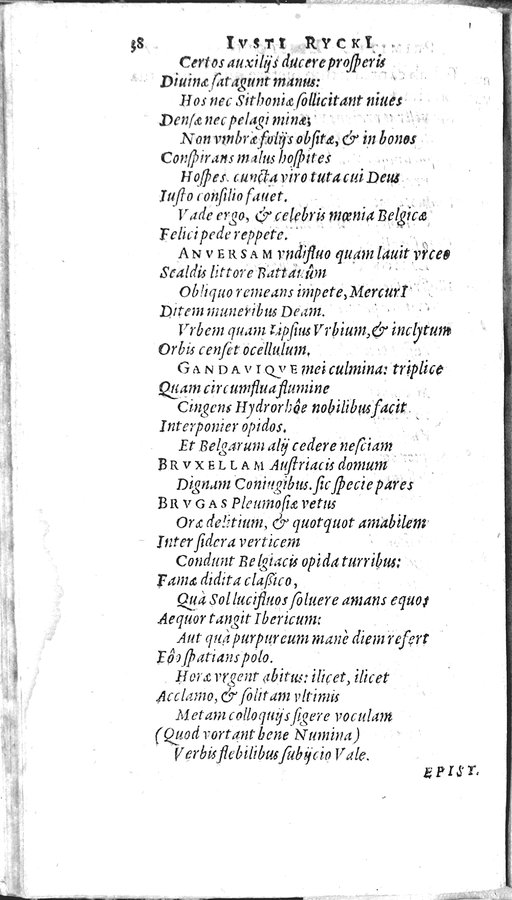 38 IVSTI RYCKI
Certos auxilijs ducere prosperis
Diuinæ satagunt manus:
Hos nec Sithoniæ sollicitant niues
Densæ nec pelagi minæ;
Non vmbræ folijs obsitæ, & in bonos
Conspirans malus hospites
Hospes. cuncta viro tuta cui Deus
Iusto consilio fauet.
Vade ergo, & celebris mœnia Belgicæ
Felici pede reppete.
ANVERSAM vndifluo quam lauit vrceo
Scaldis littore Battauûm
Obliquo remeans impete, MercurI
Ditem muneribus Deam.
Vrbem quam Lipsius Vrbium, & inclytum
Orbis censet ocellulum.
GANDAVIQVE mei culmina: triplice
Quam circumflua flumine
Cingens Hydrorhôe nobilibus facit
Interponier opidos.
Et Belgarum alij cedere nesciam
BRVXELLAM Austriacis domum
Dignam Coniugibus. sic specie pares
BRVGAS Pleumosiæ vetus
Oræ delitium, & quotquot amabilem
Inter sidera verticem
Condunt Belgiacis opida turribus:
Famæ didita classico,
Quà Sol lucifluos soluere amans equos
Aequor tangit Ibericum:
Aut quà purpureum manè diem refert
Eôo spatians polo.
Horæ vrgent abitus: ilicet, ilicet
Acclamo, & solitam vltimis
Metam colloquijs figere voculam
(Quod vortant bene Numina)
Verbis flebilibus subijcio Vale.
EPIST.